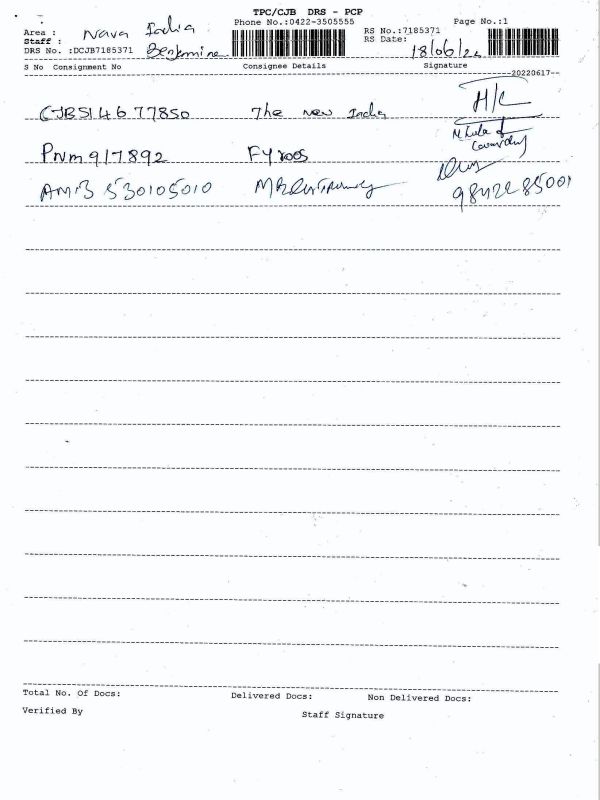 TPC/CJB DRS - PCP
Phone No.:0422-3505555 Page No.:1
Area : Nava India
RS No.:7185371
Staff : Benjamine
RS Date: 18/06/22
DRS No. :DCJB7185371
S No Consignment No Consignee Details Signature
20220617
CJB514677850 The New India H/C
PNM917892 FYROOS
AMB 530105010 9842285001
Total No. Of Docs: Delivered Docs: Non Delivered Docs:
Verified By Staff Signature